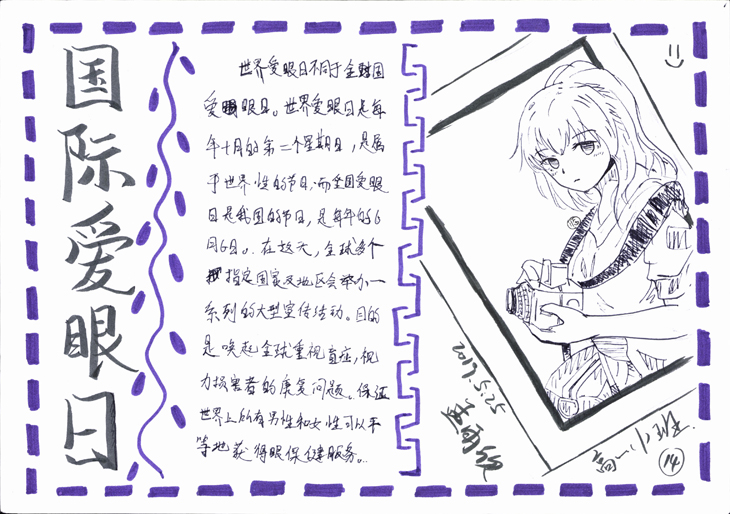 国际爱眼日
世界爱眼日不同于全国
爱眼日。世界爱眼日是每
年十月的第二个星期日，是属
于世界性的节日，而全国爱眼
日是我国的节日，是每年的6
月6日。在这天，全球多个
指定国家及地区会举办一
系列的大型宣传活动。目的
是唤起全球重视盲症，视
力损害者的康复问题。保证
世界上所有男性和女性可以平
等地获得眼保健服务。
2017.5.25
高一小班
14